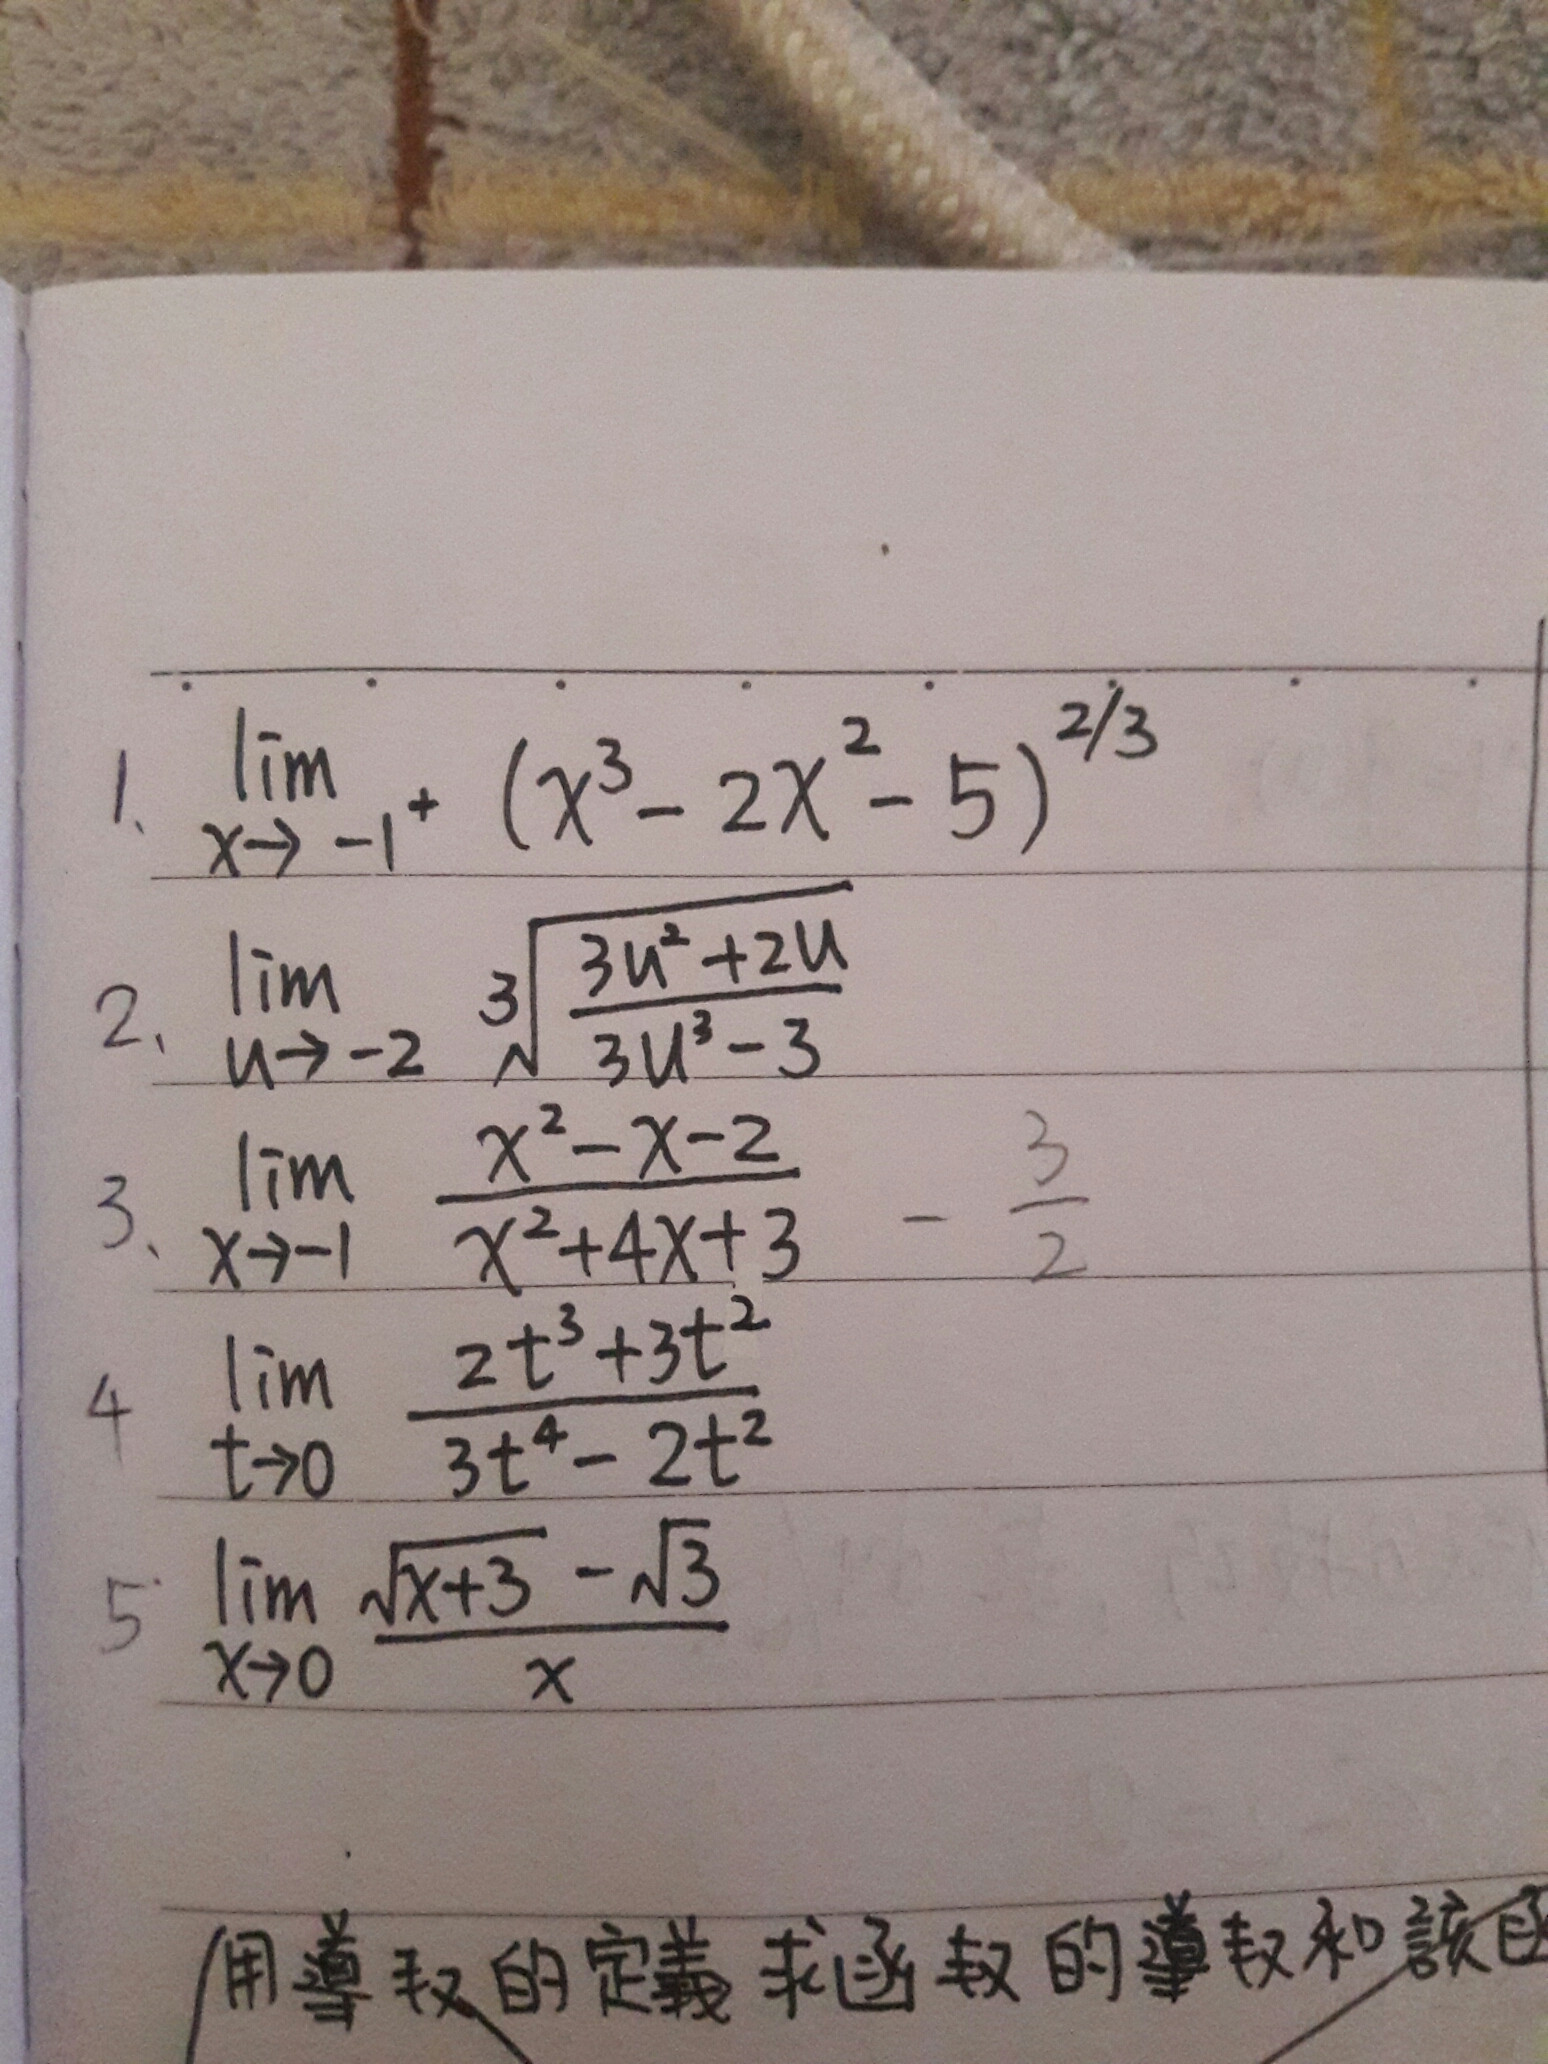 1. lim x→-1⁺ (x³ - 2x² - 5)^2/3
2. lim u→-2 ³√((3u²+2u)/(3u³-3))
3. lim x→-1 (x²-x-2)/(x²+4x+3) - 3/2
4 lim t→0 (2t³+3t²)/(3t⁴-2t²)
5 lim x→0 (√(x+3) - √3)/x
用導数的定義求函数的導数和該函